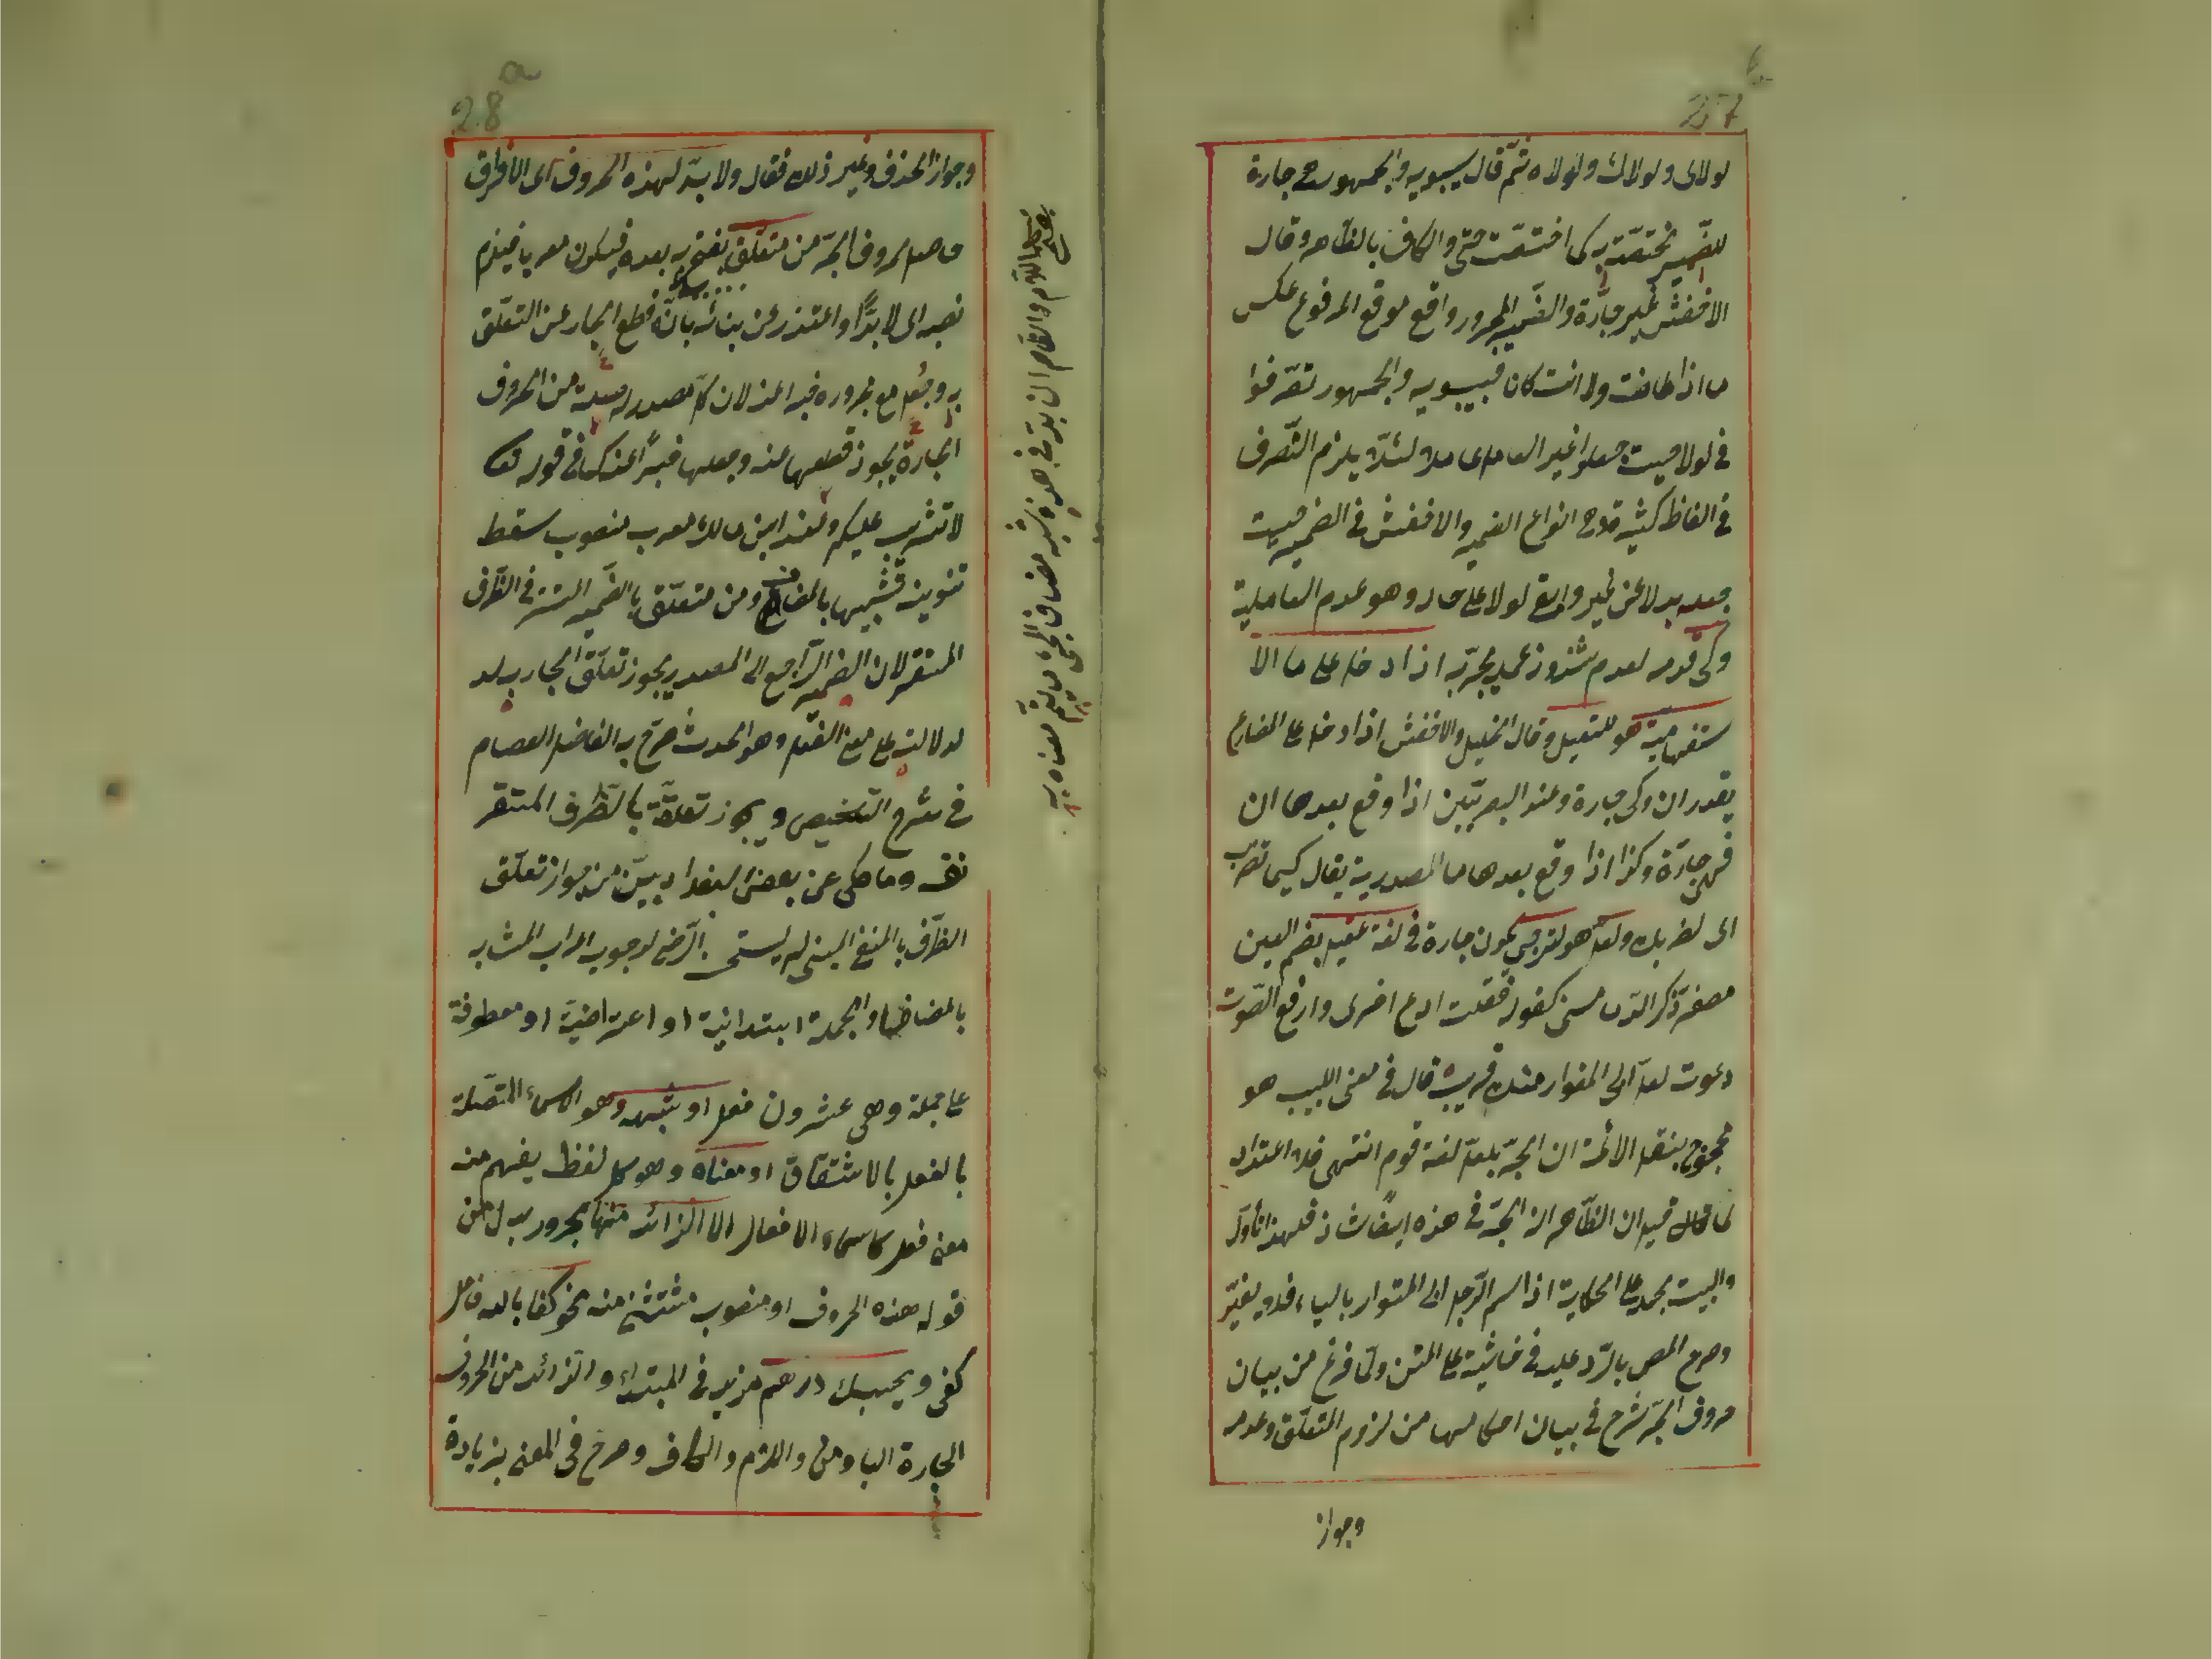 27
لولاى ولولاك ولولاه ثمّ قال سيبويه والجمهور هى جارة
للضّمير مختصّة به كما اختصّت حتّى والكاف بالظّاهر وقال
الاخفش غير جارّة والضّمير المجرور واقع موقع المرفوع عكس
ما انا كانت ولا انت كانا فسيبويه والجمهور تصّرفوا
فى لولا حيث جعلوا غير العامل عاملا لئلّا يلزم التّصرف
فى الفاظ كثيرة وهى انواع الضمير والاخفش فى الضمير حيث
جعله بدلا عن غير وابقى لولا على حاله وهو عدم العاملية
وكى قدمه لعدم شذوذ يجرّ به اذا دخل على ما الا
ستفهامية هو للتعليل وقال الخليل والاخفش اذا دخل على المضارع
يقدر ان وكى جارة وعند البصريّين اذا وقع بعدها ان
فهى جارّة وكذا اذا وقع بعدها ما المصدرية يقال كيما تضرب
اى لضربك ولعلّ هو لترجى يكون جارة فى لغة عقيل بضم العين
مصغر ذكر كقوله فقلت ادع اخرى وارفع الصّوت
دعوت لعلّ ابى المغوار منك قريب قال فى مغنى اللبيب هو
محجوج بنقل الائمة ان الجرّ بلعلّ لغة قوم انتهى فلا اعتداد
لما قال قيل ان الظّاهر ان الجرّ فى هذه ايضًا شاذ فلهذا تأوّل
والبيت يحمل على الحكاية اذا اسم الرّجل ابى المغوار بالياء فلا يغيّر
وصرح المص بالرّد عليه فى حاشية على المتن ولمّا فرغ من بيان
حروف الجرّ شرع فى بيان احكامها من لزوم التعلّق وعدمه
وجواز
28 a
وجواز الحذف وغير ذلك فقال ولا بدّ لهذه الحروف اى لا فراق
حاصل لحروف الجرّ من متعلّق بفتح به بعده فيكون معربا فيلزم
نصبه اى لا بدًّا واعتذر عن بنائه بانّه قطع الجار عن التعلّق
به وجعل مع مجروره خبرا لان كل مصدر من الحروف
الجارّة يجوز قطعها عنه وجعلها خبرًا عنه كما فى قوله تعالى
لا تثريب عليكم وعند ابن مالك معرب منصوب سقط
تنوينه تشبيها بالمضاف ومن متعلّق بالضّمير المستتر فى الظّرف
المستقر لان الضمير الرّاجع الى المصدر يجوز تعلّق الجار به
لدلالته على معنى الفعل وهو الحدث صرّح به الفاضل العصام
فى شرح التلخيص ويجوز تعلقّه بالظّرف المستقر
نفسه وما حكى عن بعض البغداديين من جواز تعلّق
الظّرف بالمنفى المبنى لم يستحسنه الرّضى لوجوب اعراب المشابه
بالمضاف والجملة ابتدائية او اعتراضيّة او معطوفة
على جملة وهى عشرون فعل او شبهه وهو الاسماء المتصّلة
بالفعل بالاشتقاق او معناه وهو كل لفظ يفهم منه
معنى فعل كاسماء الافعال الا الزّائد منها مجرور بدل من
قوله هذه الحروف او منصوب مستثنى منه نحو كفى بالله فاعل
كفى وبحسبك درهم مزيد فى المبتداء والزّائد من الحروف
الجارة الباء ومن واللام والكاف وصرح فى المغنى بزيادة